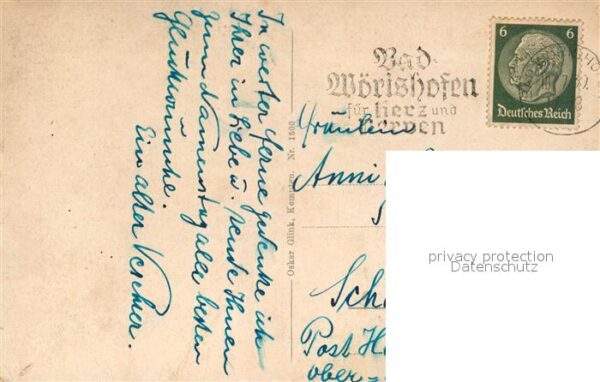 In weiter Ferne gedenke ich
Ihrer in Liebe u. sende Ihnen
zum Namenstag alle besten
Glückwünsche.
Ein alter Verehrer.
Oskar Glink, Kempten. Nr. 1500
Bad-
Wörishofen
für Herz und
Nerven
6 6
Deutsches Reich
Fräulein
Anni
Post
ober-
privacy protection
Datenschutz